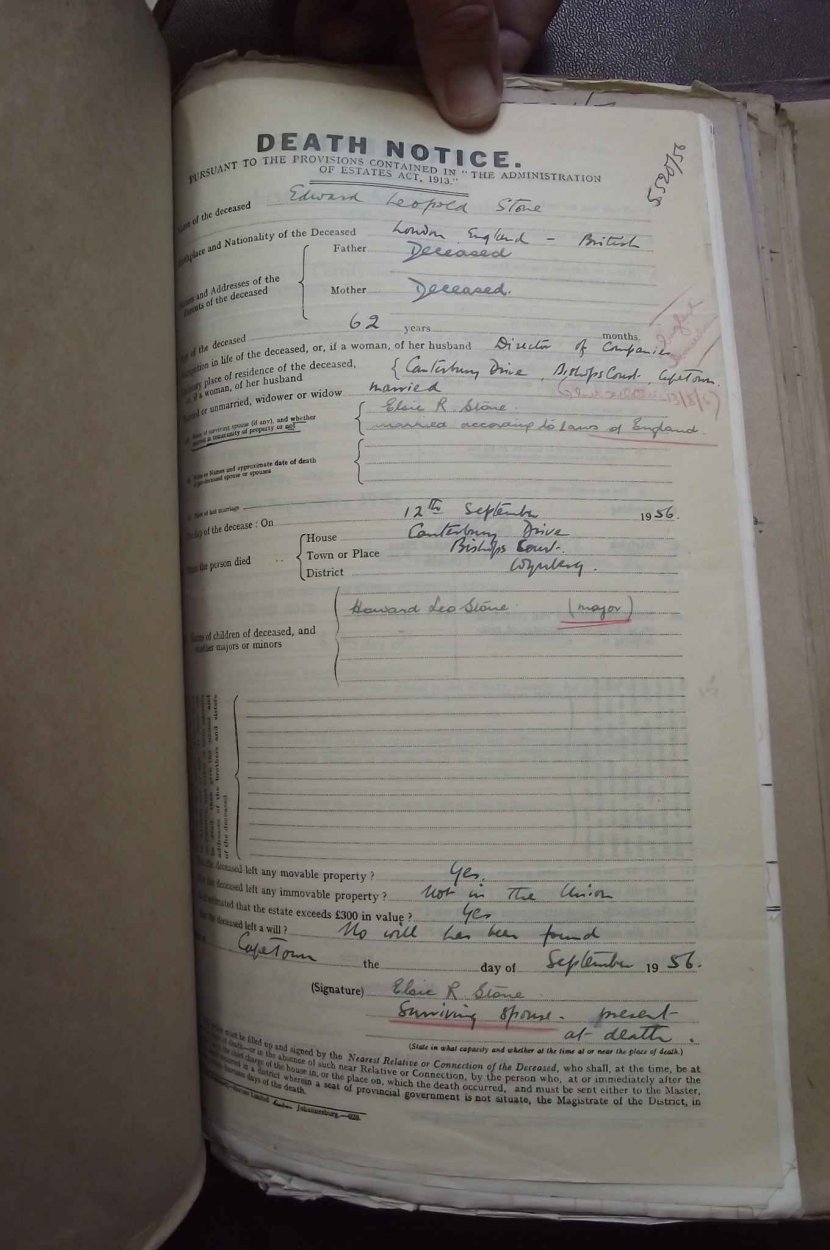 5520/56
DEATH NOTICE.
PURSUANT TO THE PROVISIONS CONTAINED IN "THE ADMINISTRATION
OF ESTATES ACT, 1913."
of the deceased Edward Leopold Stone
Birthplace and Nationality of the Deceased London England - British
Names and Addresses of the Parents of the deceased
Father Deceased
Mother Deceased.
of the deceased 62 years months.
in life of the deceased, or, if a woman, of her husband Director of Companies
place of residence of the deceased, if a woman, of her husband Canterbury Drive, Bishops Court, Cape Town.
or unmarried, widower or widow married
of surviving spouse (if any), and whether married in community of property or not
Elsie R Stone
married according to Laws of England.
or Names and approximate date of death of pre-deceased spouse or spouses
Place of last marriage
day of the decease : On 12th September 1956.
the person died
House Canterbury Drive
Town or Place Bishops Court.
District Wynberg.
of children of deceased, and whether majors or minors
Howard Leo Stone (major)
addresses of the brothers and sisters
of the deceased.
deceased left any movable property ? Yes.
deceased left any immovable property ? Not in the Union
estimated that the estate exceeds £300 in value ? Yes
the deceased left a will ? No will has been found
Cape Town the day of September 1956.
(Signature) Elsie R Stone
Surviving spouse - present
at death.
(State in what capacity and whether at the time at or near the place of death.)
must be filled up and signed by the Nearest Relative or Connection of the Deceased, who shall, at the time, be at
of death—or in the absence of such near Relative or Connection, by the person who, at or immediately after the
the chief charge of the house in, or the place on, which the death occurred, and must be sent either to the Master,
in a district wherein a seat of provincial government is not situate, the Magistrate of the District, in
days of the death.
Limited Johannesburg.